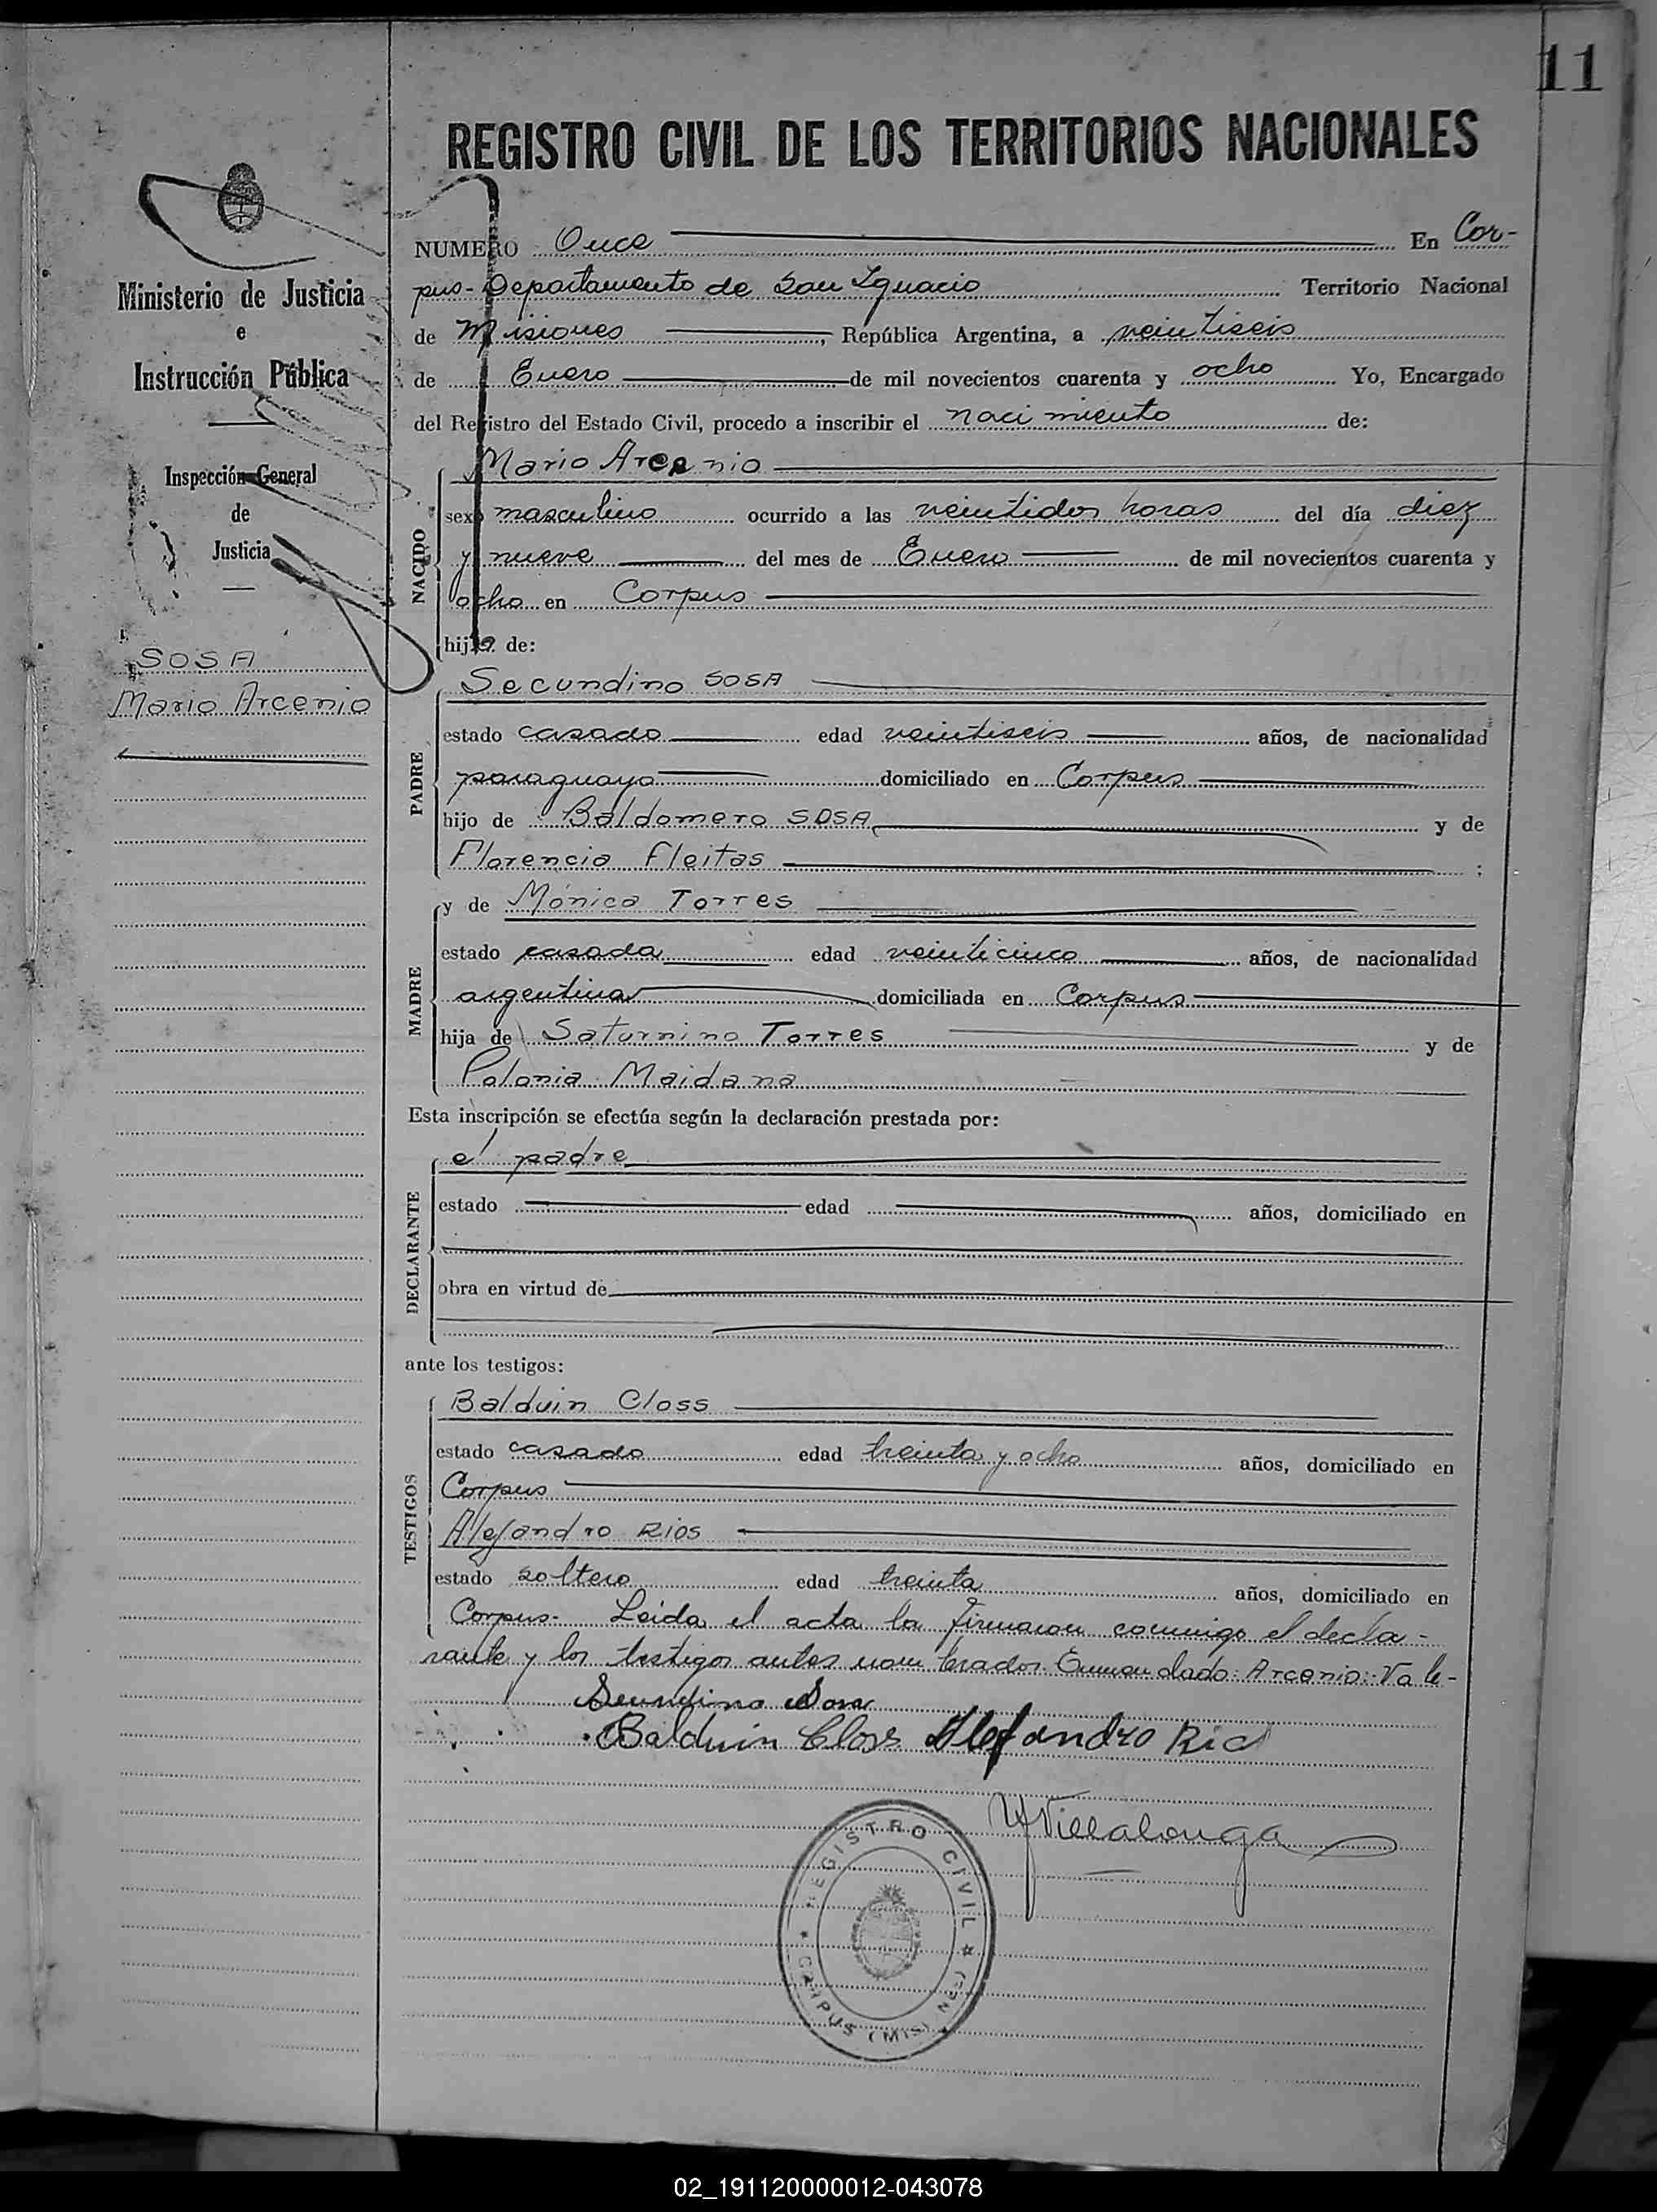 11
REGISTRO CIVIL DE LOS TERRITORIOS NACIONALES
Ministerio de Justicia
e
Instrucción Pública
Inspección General
de
Justicia
SOSA
Mario Arcenio
NUMERO Once En Cor-
pus - Departamento de San Ignacio Territorio Nacional
de Misiones, República Argentina, a veintiseis
de Enero de mil novecientos cuarenta y ocho Yo, Encargado
del Registro del Estado Civil, procedo a inscribir el nacimiento de:
NACIDO
Mario Arcenio
sexo masculino ocurrido a las veintidos horas del día diez
y nueve del mes de Enero de mil novecientos cuarenta y
ocho en Corpus
hijo de:
PADRE
Secundino SOSA
estado casado edad veintiseis años, de nacionalidad
paraguaya domiciliado en Corpus
hijo de Baldomero SOSA y de
Florencia Fleitas ;
MADRE
y de Mónica Torres
estado casada edad veinticinco años, de nacionalidad
argentina domiciliada en Corpus
hija de Saturnino Torres y de
Polonia Maidana
Esta inscripción se efectúa según la declaración prestada por:
DECLARANTE
el padre
estado edad años, domiciliado en
obra en virtud de
ante los testigos:
TESTIGOS
Balduin Closs
estado casado edad treinta y ocho años, domiciliado en
Corpus
Alejandro Rios
estado soltero edad treinta años, domiciliado en
Corpus - Leida el acta la firmaron conmigo el decla-
rante y los testigos antes nombrados. Enmendado: Arcenio: Vale-
Secundino Sosa
Balduin Closs Alejandro Rios
Villalonga
REGISTRO CIVIL
CORPUS (MIS)
02_191120000012-043078